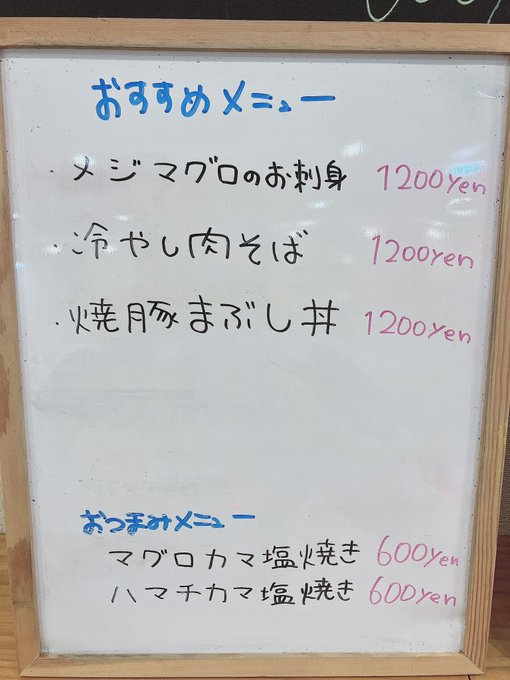 おすすめメニュー
・メジマグロのお刺身 1200yen
・冷やし肉そば 1200yen
・焼豚まぶし丼 1200yen
おつまみメニュー
マグロカマ塩焼き 600yen
ハマチカマ塩焼き 600yen